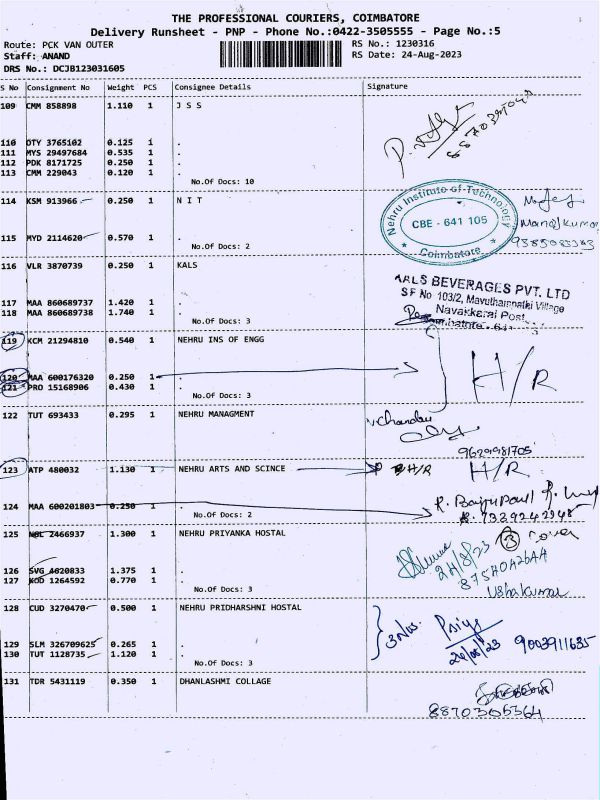 THE PROFESSIONAL COURIERS, COIMBATORE
Delivery Runsheet - PNP - Phone No.:0422-3505555 - Page No.:5
Route: PCK VAN OUTER RS No.: 1230316
Staff: ANAND RS Date: 24-Aug-2023
DRS No.: DCJB123031605
S No Consignment No Weight PCS Consignee Details Signature
109 CMM 858898 1.110 1 J S S
110 OTY 3765102 0.125 1 .
111 MYS 29497684 0.535 1 .
112 PDK 8171725 0.250 1 .
113 CMM 229043 0.120 1 .
No.Of Docs: 10
114 KSM 913966 0.250 1 N I T
Nehru Institute of Technology
CBE - 641 105
Coimbatore
Manojkumar
115 MYD 2114620 0.570 1 .
No.Of Docs: 2
116 VLR 3870739 0.250 1 KALS
KALS BEVERAGES PVT. LTD
SF No 103/2, Mavuthampathi Village
Navakkarai Post
117 MAA 860689737 1.420 1 .
118 MAA 860689738 1.740 1 .
No.Of Docs: 3
119 KCM 21294810 0.540 1 NEHRU INS OF ENGG
H/R
120 MAA 600176320 0.250 1 .
121 PRO 15168906 0.430 1 .
No.Of Docs: 3
122 TUT 693433 0.295 1 NEHRU MANAGMENT
9629981705
123 ATP 480032 1.130 1 NEHRU ARTS AND SCINCE H/R H/R
124 MAA 600201803 0.250 1 .
No.Of Docs: 2
7339242948
125 NBL 2466937 1.300 1 NEHRU PRIYANKA HOSTAL
3
24/8/23
126 SVG 4620833 1.375 1 .
127 KOD 1264592 0.770 1 .
No.Of Docs: 3
Ushakumar
128 CUD 3270470 0.500 1 NEHRU PRIDHARSHNI HOSTAL
3 Nos. Priya
24/08/23 9003911635
129 SLM 326709625 0.265 1 .
130 TUT 1128735 1.120 1 .
No.Of Docs: 3
131 TDR 5431119 0.350 1 DHANLASHMI COLLAGE
8870305364